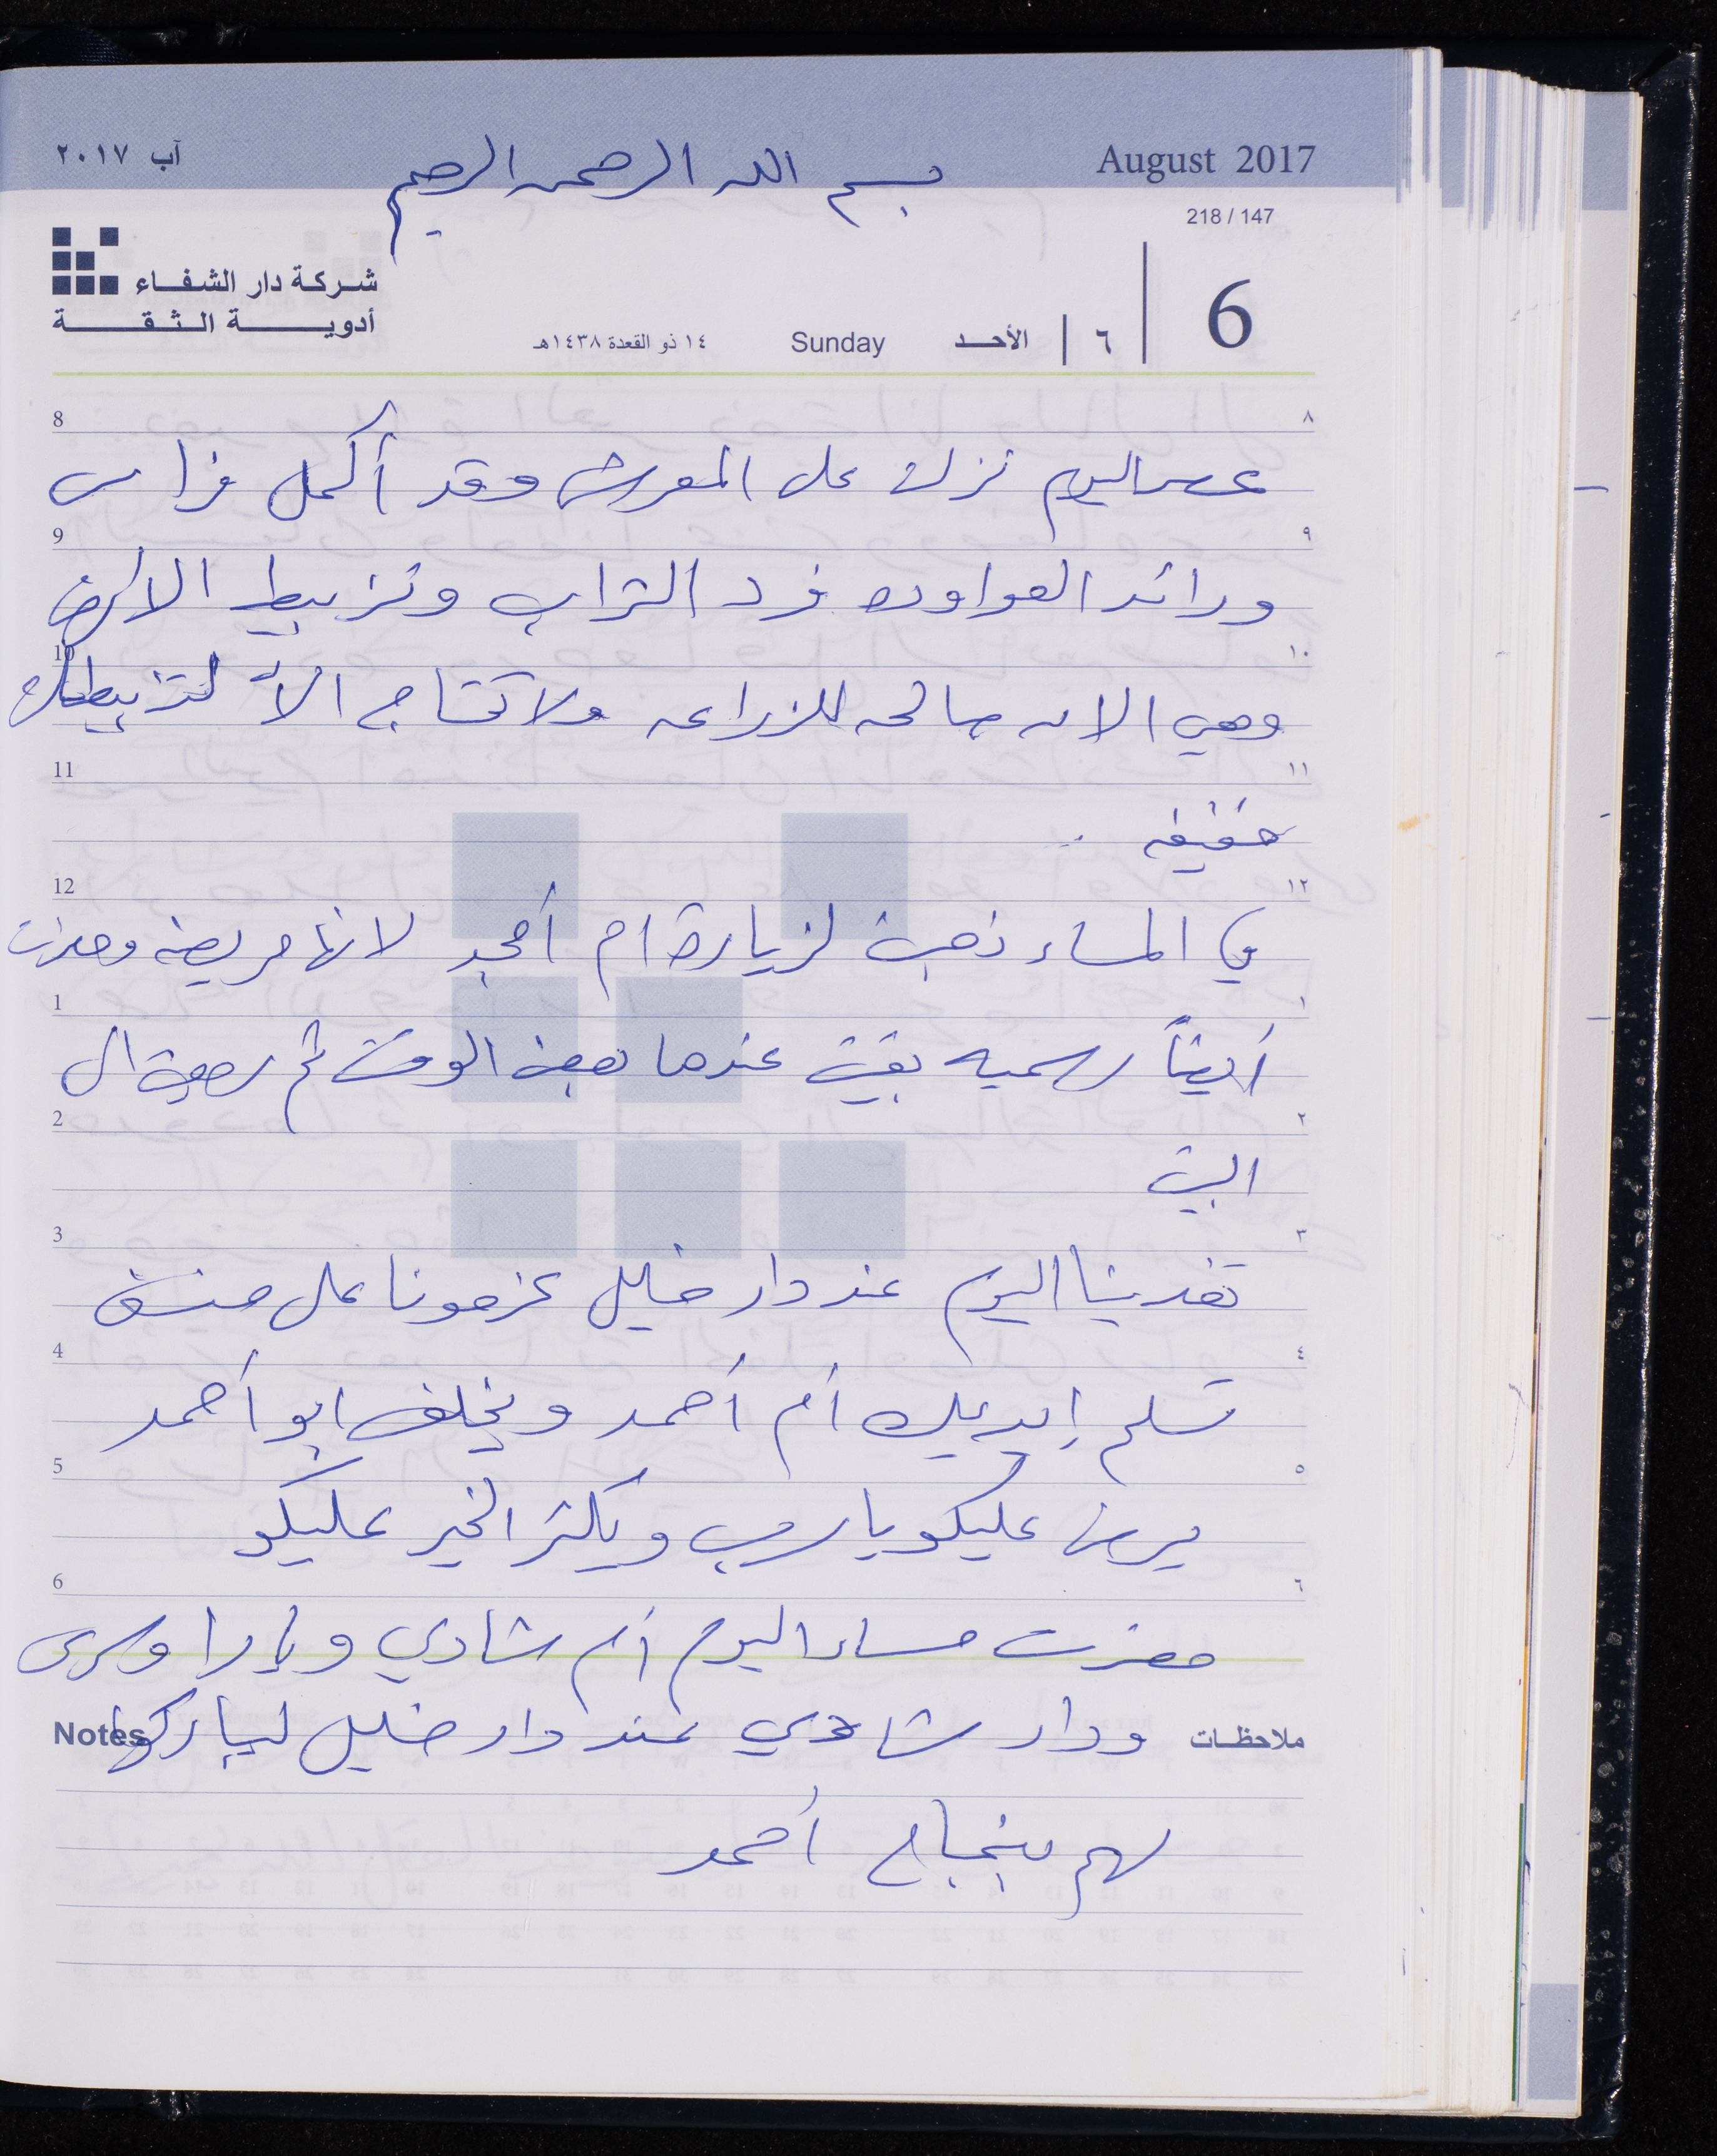 آب ٢٠١٧
August 2017
بسم الله الرحمن الرحيم
218 / 147
شركة دار الشفاء
أدوية الثقة
6
٦
الأحد
Sunday
١٤ ذو القعدة ١٤٣٨هـ
8 ٨
عصر اليوم نزلت على المعرش وقد أكمل فراس
9 ٩
ورائد العواوده فرد التراب وتزبيط الارض
10 ١٠
وهي الان صالحه للزراعه ولا تحتاج الا لتزبيطات
11 ١١
خفيفه ..
12 ١٢
في المساء ذهبت لزيارة ام أمجد لانها مريضه وحضرت
1 ١
أيضاً رسميه بقيت عندها بعض الوقت ثم رجعت الى
2 ٢
البيت
3 ٣
تغدينا اليوم عند دار خليل عزمونا على منسف
4 ٤
تسلم إيديك أم أحمد ويخلف ابو أحمد
5 ٥
عليكو يا رب ويكثر الخير عليكو
6 ٦
حضرت مساء اليوم أم شادي ويارا
Notes ملاحظات
ودار شادي عند دار خليل ليباركوا
لهم بنجاح أحمد